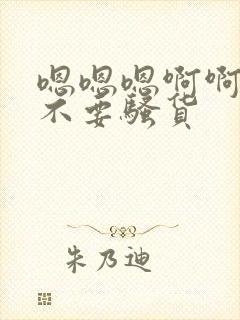 嗯嗯嗯啊啊
不要骚货
朱乃迪